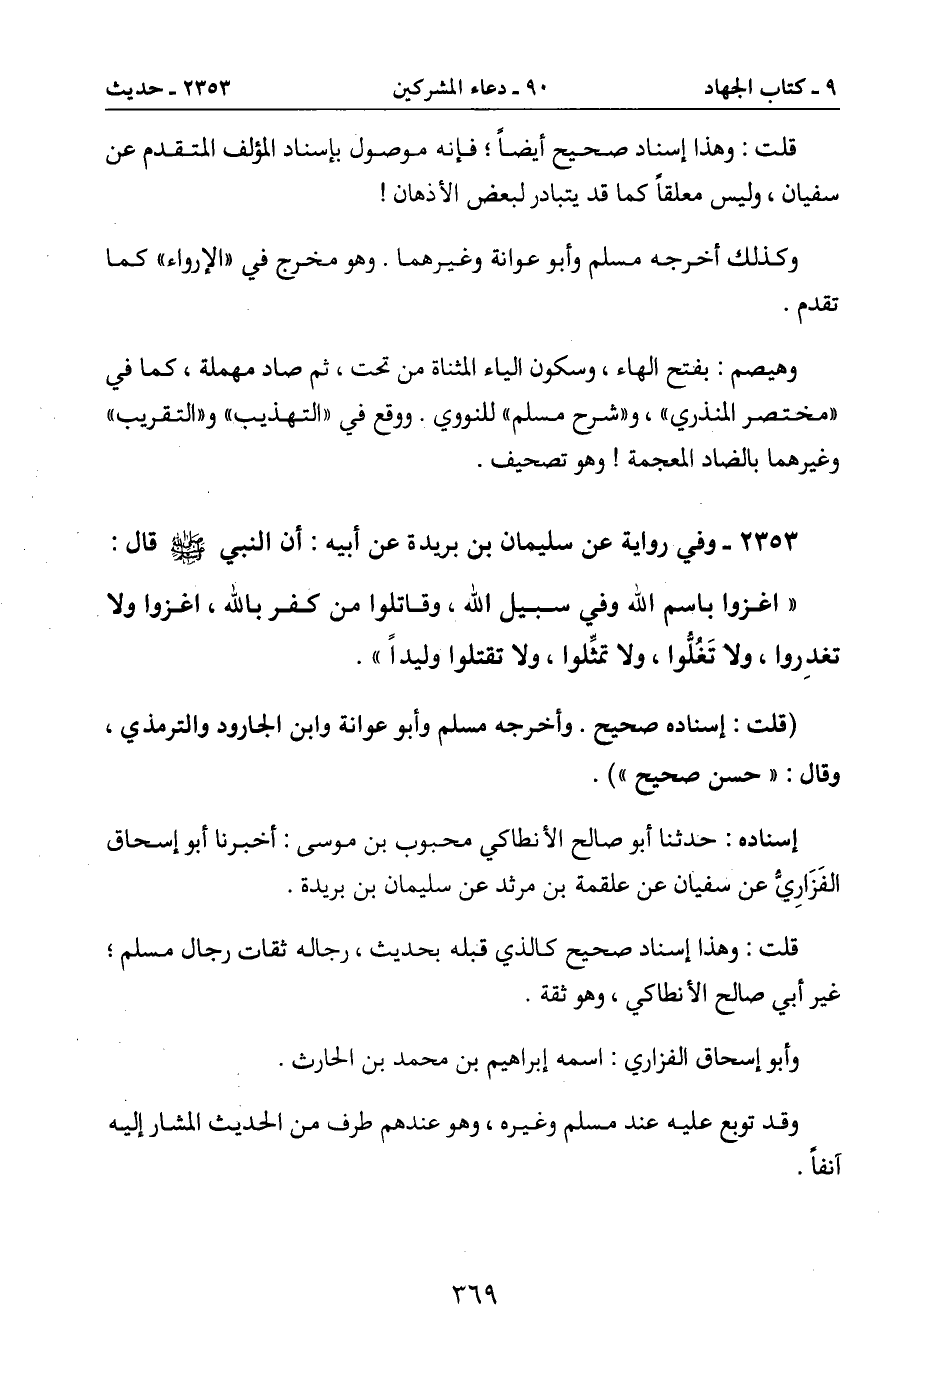 ٩ ـ كتاب الجهاد ٩٠ ـ دعاء المشركين ٢٣٥٣ ـ حديث
قلت : وهذا إسناد صحيح أيضاً ؛ فإنه موصول بإسناد المؤلف المتقدم عن
سفيان ، وليس معلقاً كما قد يتبادر لبعض الأذهان !
وكذلك أخرجه مسلم وأبو عوانة وغيرهما . وهو مخرج في «الإرواء» كما
تقدم .
وهيصم : بفتح الهاء ، وسكون الياء المثناة من تحت ، ثم صاد مهملة ، كما في
«مختصر المنذري» ، و«شرح مسلم» للنووي . ووقع في «التهذيب» و«التقريب»
وغيرهما بالضاد المعجمة ! وهو تصحيف .
٢٣٥٣ ـ وفي رواية عن سليمان بن بريدة عن أبيه : أن النبي ﷺ قال :
« اغزوا باسم الله وفي سبيل الله ، وقاتلوا من كفر بالله ، اغزوا ولا
تغدِروا ، ولا تَغُلُّوا ، ولا تمثِّلوا ، ولا تقتلوا وليداً » .
(قلت : إسناده صحيح . وأخرجه مسلم وأبو عوانة وابن الجارود والترمذي ،
وقال : « حسن صحيح ») .
إسناده : حدثنا أبو صالح الأنطاكي محبوب بن موسى : أخبرنا أبو إسحاق
الفَزَارِيُّ عن سفيان عن علقمة بن مرثد عن سليمان بن بريدة .
قلت : وهذا إسناد صحيح كالذي قبله بحديث ، رجاله ثقات رجال مسلم ؛
غير أبي صالح الأنطاكي ، وهو ثقة .
وأبو إسحاق الفزاري : اسمه إبراهيم بن محمد بن الحارث .
وقد توبع عليه عند مسلم وغيره ، وهو عندهم طرف من الحديث المشار إليه
آنفاً .
٣٦٩